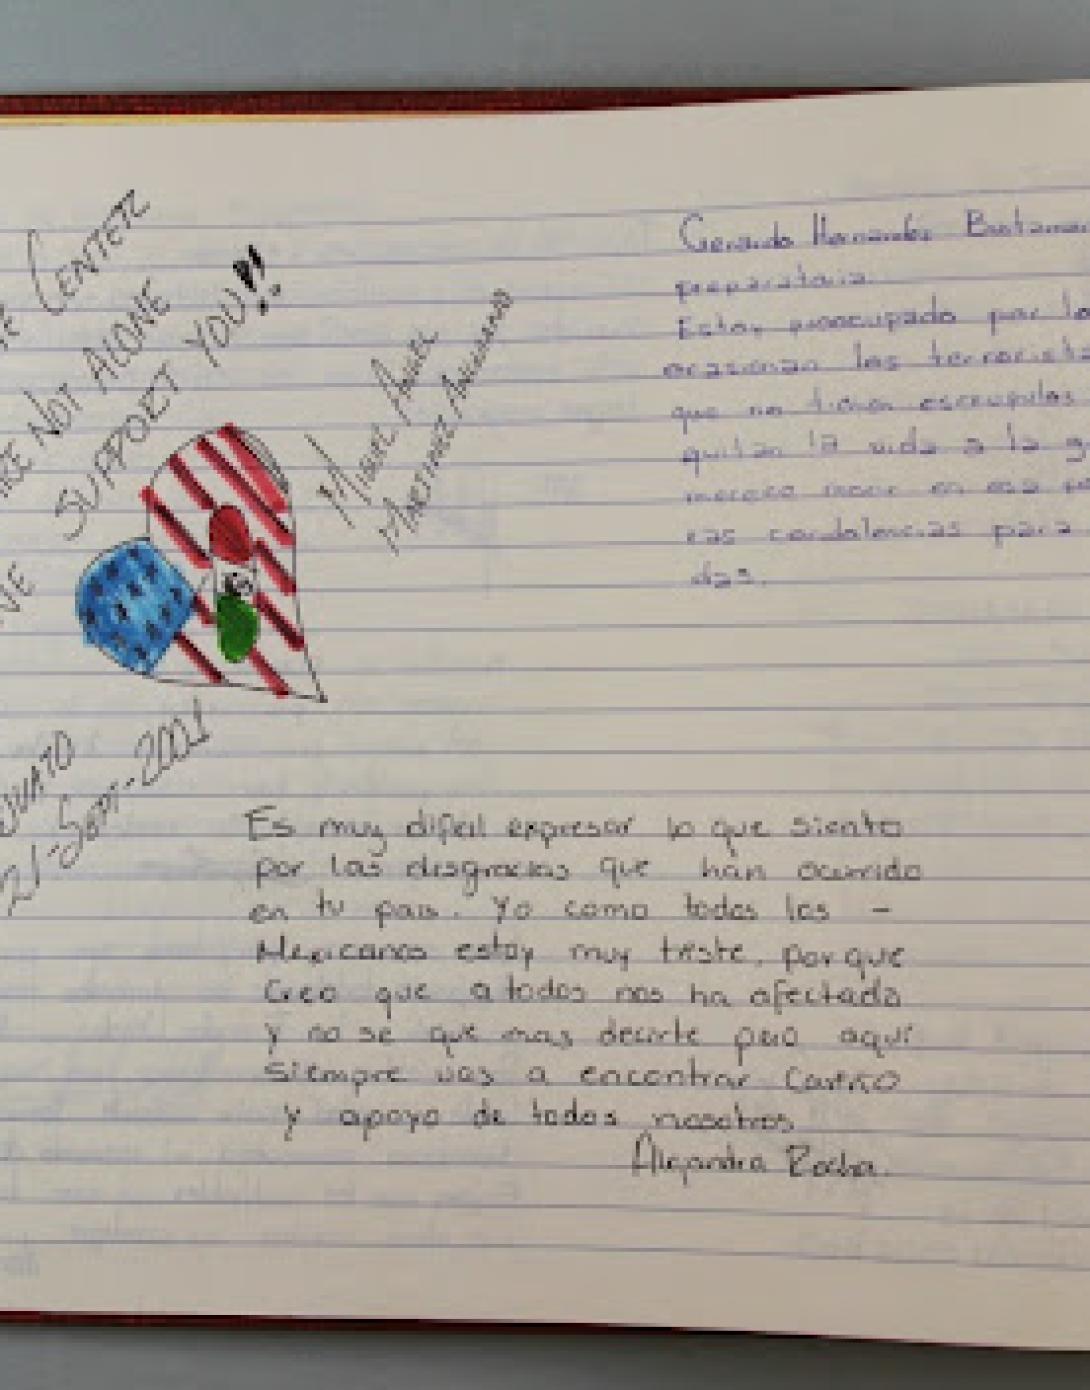 CENTER
RE NOT ALONE
SUPPORT YOU!!
MIGUEL ANGEL
MARTINEZ
21-SEPT-2001
Gerardo Hernández
preparatoria.
Estoy preocupado por lo
ocasionan los terrorista
que no tienen escrupulos
quitan la vida a la g
merece morir en esa
cas condolencias para
das.
Es muy dificil expresar lo que siento
por las desgracias que han ocurrido
en tu pais. Yo como todos los -
Mexicanos estoy muy triste, porque
Creo que a todos nos ha afectado
y no se que mas decirte pero aquí
siempre vas a encontrar Cariño
y apoyo de todos nosotros
Alejandra Rocha.